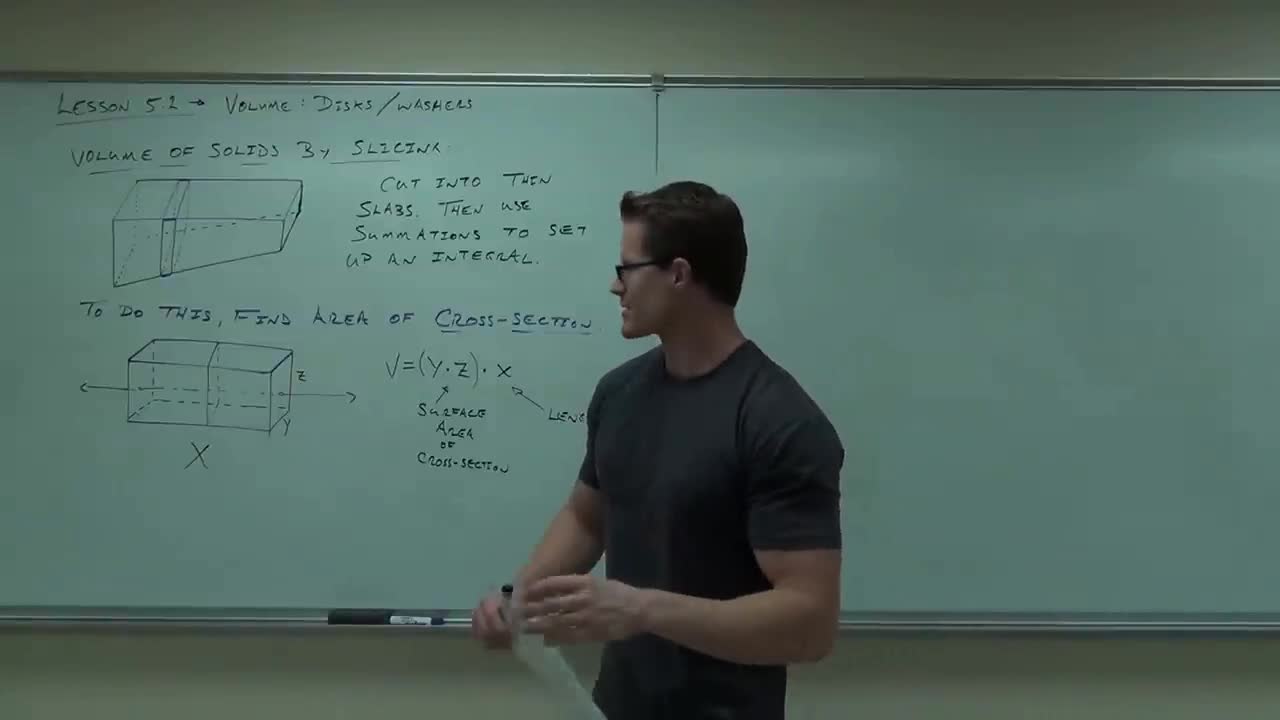 LESSON 5.2 → VOLUME: DISKS/WASHERS
VOLUME OF SOLIDS BY SLICING.
CUT INTO THIN
SLABS. THEN USE
SUMMATIONS TO SET
UP AN INTEGRAL.
TO DO THIS, FIND AREA OF CROSS-SECTION.
V=(Y·Z)·X
Z
Y
X
SURFACE
AREA
OF
CROSS-SECTION
LENG